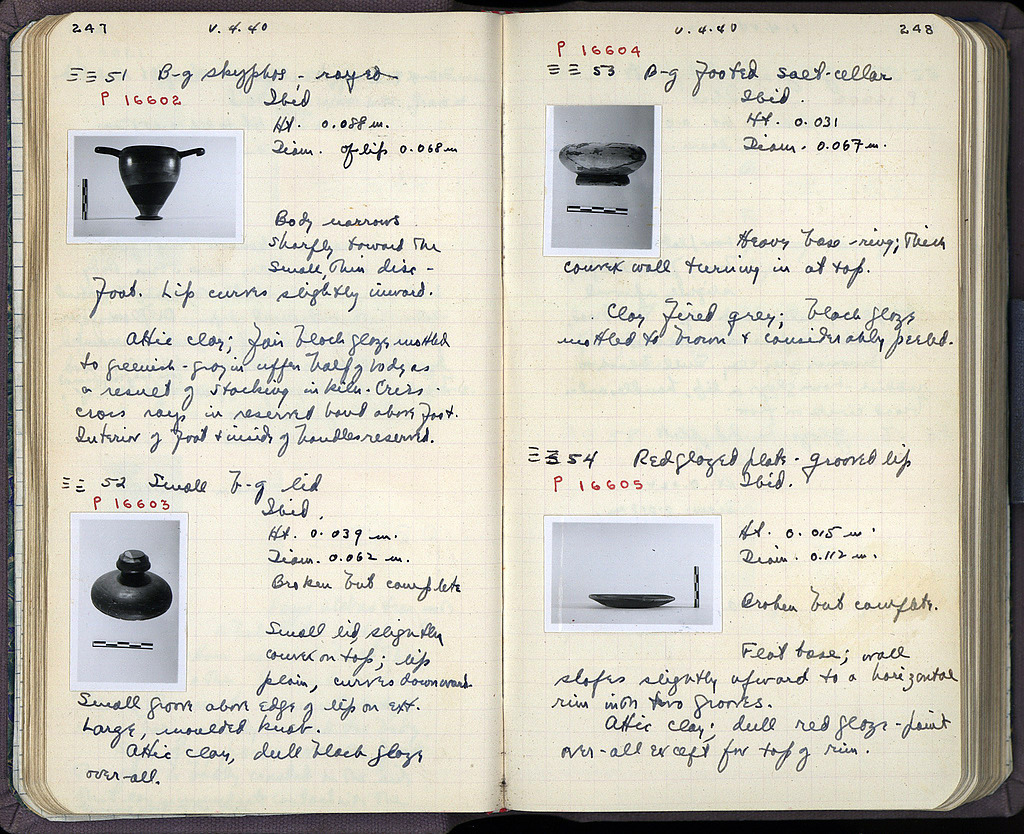 247
V. 4. 40
ΞΞ 51 B-g skyphos - rayed
P 16602
Ibid
Ht. 0.088 m.
Diam. of lip 0.068 m
Body narrows
sharply toward the
small, thin disc-
foot. Lip curves slightly inward.
Attic clay; fair black glaze mottled
to greenish-gray in upper half of body as
a result of stacking in kiln. Criss-
cross rays in reserved band above foot.
Interior of foot & inside of handles reserved.
ΞΞ 52 Small b-g lid
P 16603
Ibid.
Ht. 0.039 m.
Diam. 0.062 m.
Broken but complete
Small lid, slightly
convex on top; lip
plain, curves downward.
Small groove above edge of lip on ext.
Large, moulded knob.
Attic clay, dull black glaze
over-all.
V. 4. 40
248
P 16604
ΞΞ 53 B-g footed salt-cellar
Ibid.
Ht. 0.031
Diam. 0.067 m.
Heavy base-ring; thick
convex wall turning in at top.
Clay fired grey; black glaze
mottled to brown & considerably peeled.
ΞΞ 54 Red glazed plate - grooved lip
P 16605
Ibid.
Ht. 0.015 m.
Diam. 0.112 m.
Broken but complete.
Flat base; wall
slopes slightly upward to a horizontal
rim with two grooves.
Attic clay; dull red glaze-paint
over-all except for top of rim.